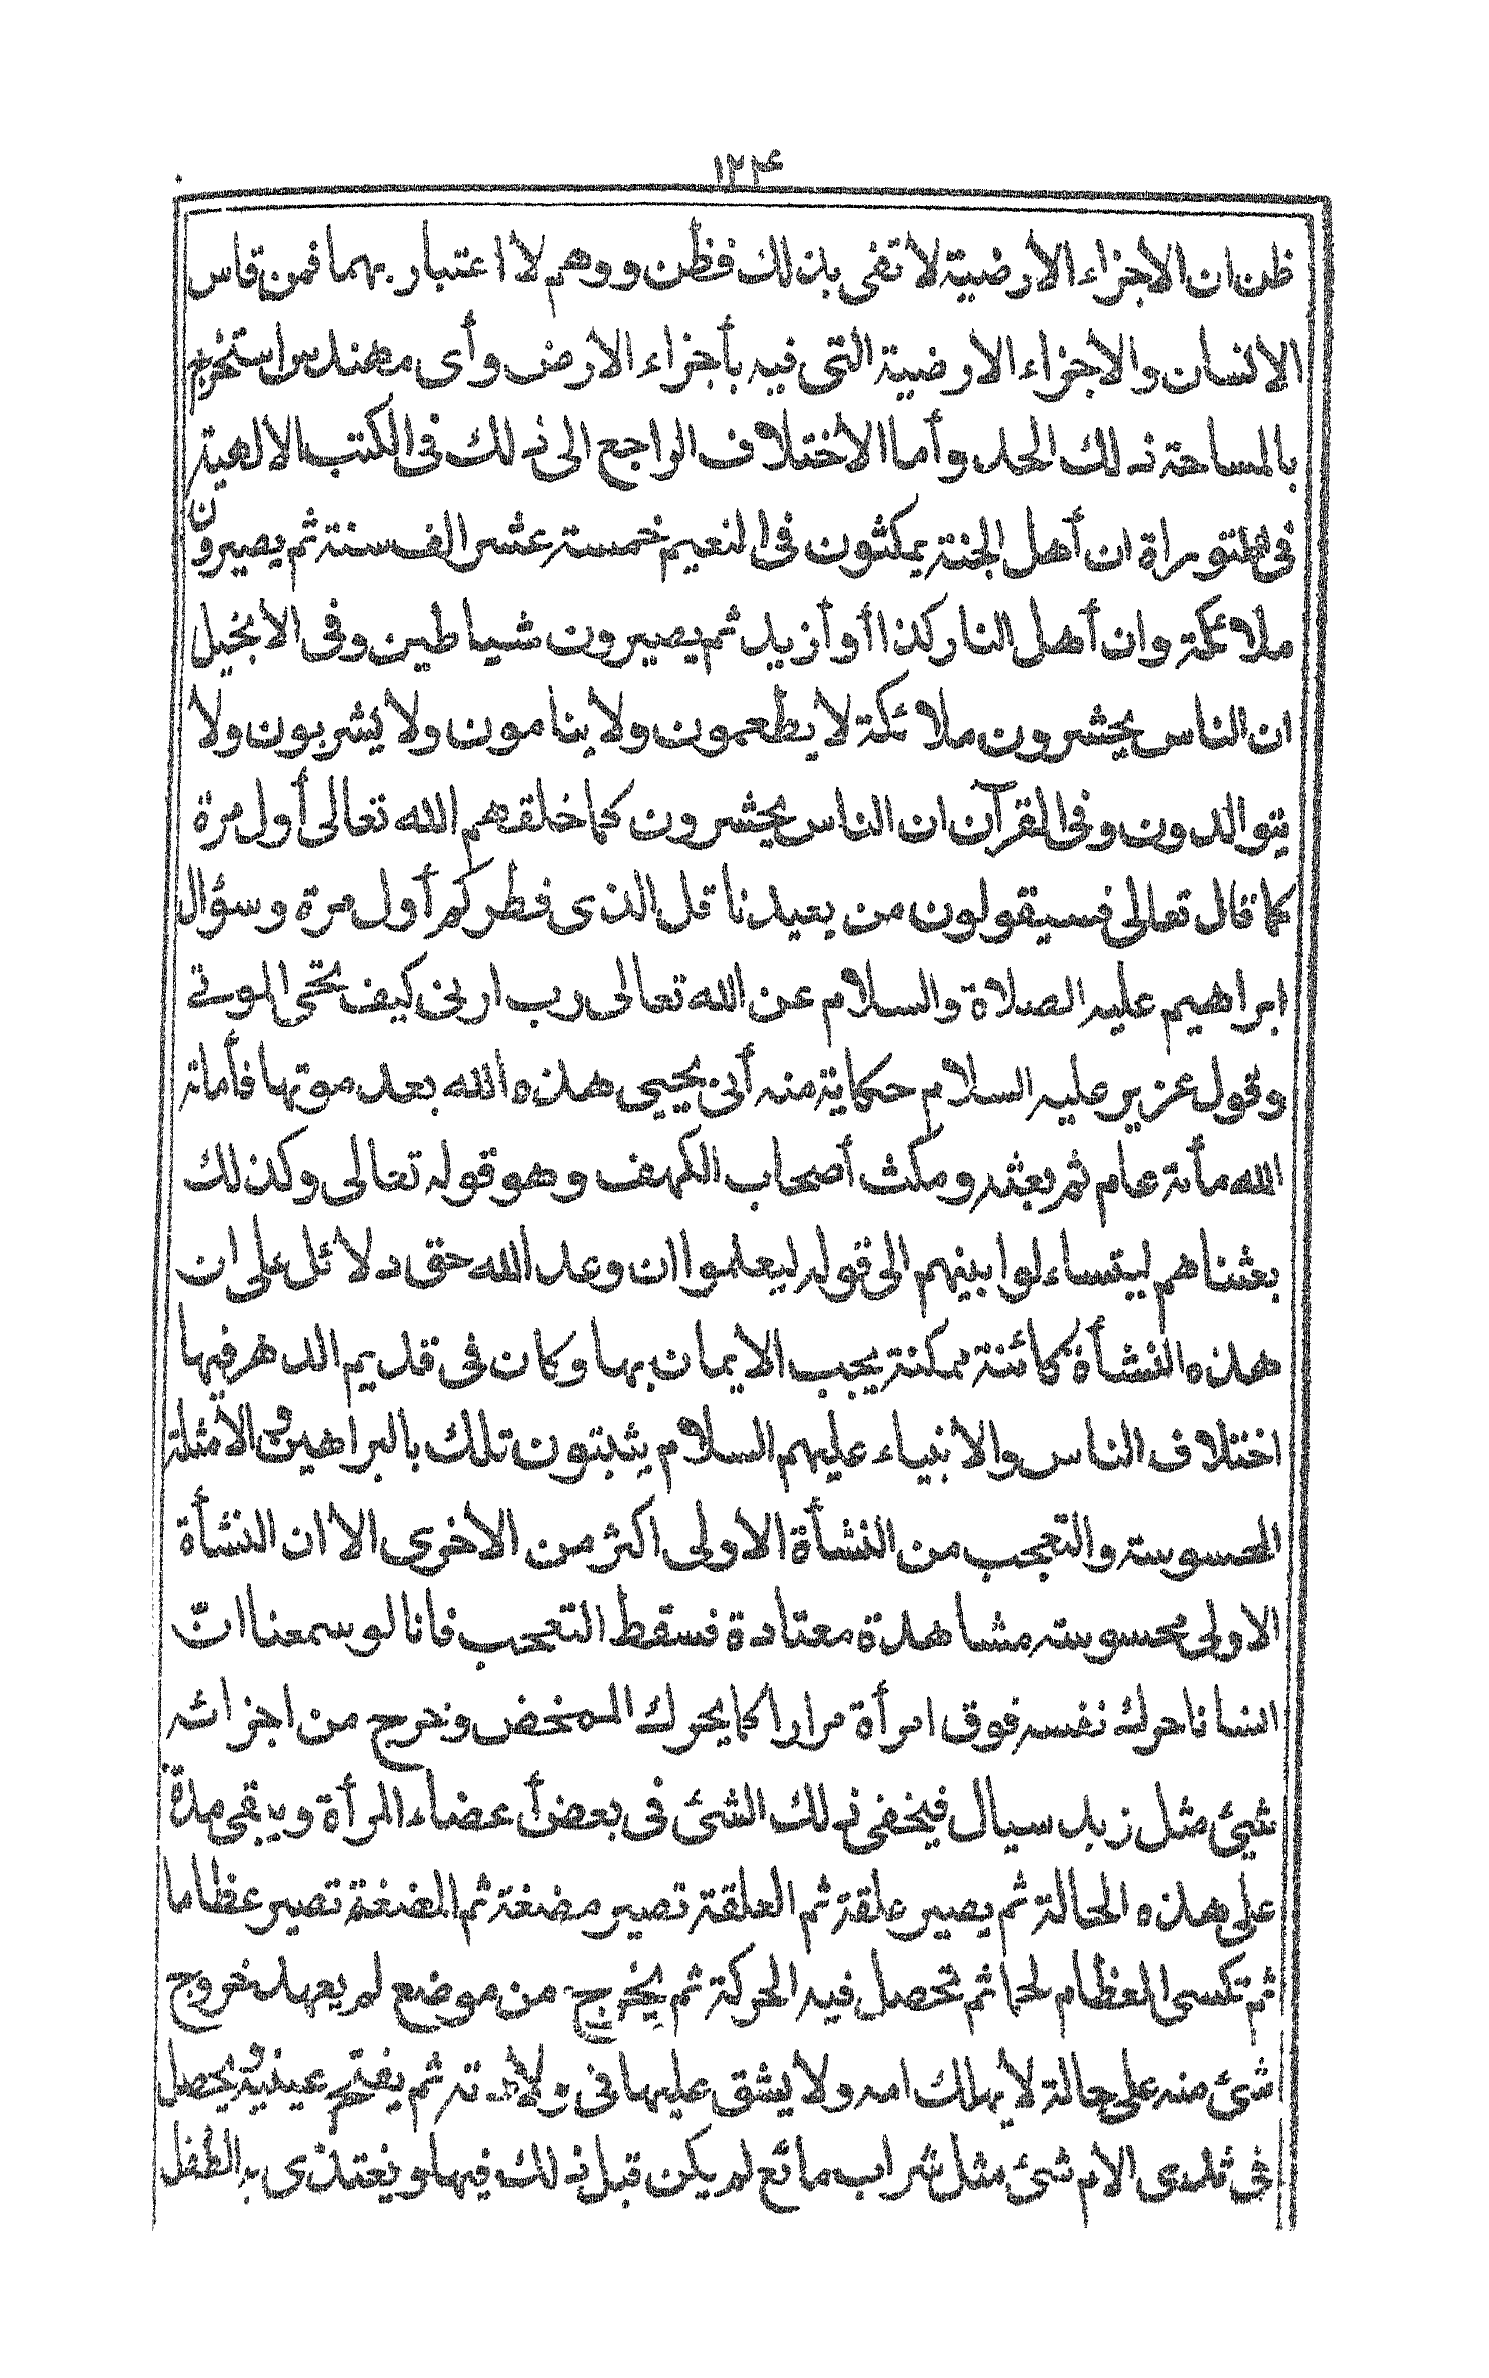 ١٢٤
ظن ان الأجزاء الأرضية لا تفى بذلك فظن ووهم لا اعتبار بهما فمن قاس
الانسان والاجزاء الارضية التى فيه بأجزاء الارض وأى مهندس استخرج
بالمساحة ذلك الحد وأما الاختلاف الراجع الى ذلك فى الكتب الالهية
فى التوراة ان أهل الجنة يمكثون فى النعيم خمسة عشر الف سنة ثم يصيرون
ملائكة وان أهل النار كذا أو أزيد ثم يصيرون شياطين وفى الانجيل
ان الناس يحشرون ملائكة لا يطعمون ولا ينامون ولا يشربون ولا
يتوالدون وفى القرآن ان الناس يحشرون كما خلقهم الله تعالى أول مرة
كما قال تعالى فسيقولون من يعيدنا قل الذى فطركم أول مرة وسؤال
ابراهيم عليه الصلاة والسلام عن الله تعالى رب ارنى كيف تحى الموتى
وقول عزير عليه السلام حكاية منه أنى يحيى هذه الله بعد موتها فأماته
الله مأتة عام ثم بعثه ومكث أصحاب الكهف وهو قوله تعالى وكذلك
بعثناهم ليتساءلوا بينهم الى قوله ليعلموا ان وعد الله حق دلائل على ان
هذه النشأة كائنة ممكنة يجب الايمان بها وكان فى قديم الدهر فيها
اختلاف الناس والانبياء عليهم السلام يثبتون تلك بالبراهين والأمثلة
المحسوسة والتعجب من النشأة الاولى اكثر من الاخرى الا ان النشأة
الاولى محسوسة مشاهدة معتادة فسقط التعجب فانا لو سمعنا انّ
انسانا حرك نفسه فوق امرأة مرارا كما يحرك الممخض وخرج من اجزائه
شيئ مثل زبد سيال فيخفى ذلك الشئ فى بعض أعضاء المرأة ويبقى مدة
على هذه الحالة ثم يصير علقة ثم العلقة تصير مضغة ثم المضغة تصير عظاما
ثم تكسى العظام لحما ثم تحصل فيه الحركة ثم يخرج من موضع لم يعهد خروج
شئ منه على حالة لا يهلك امه ولا يشق عليها فى ولادته ثم يفتح عينيه ويحصل
فى ثدى الام شئ مثل شراب مائع لم يكن قبل ذلك فيها ويغتذى به الطفل